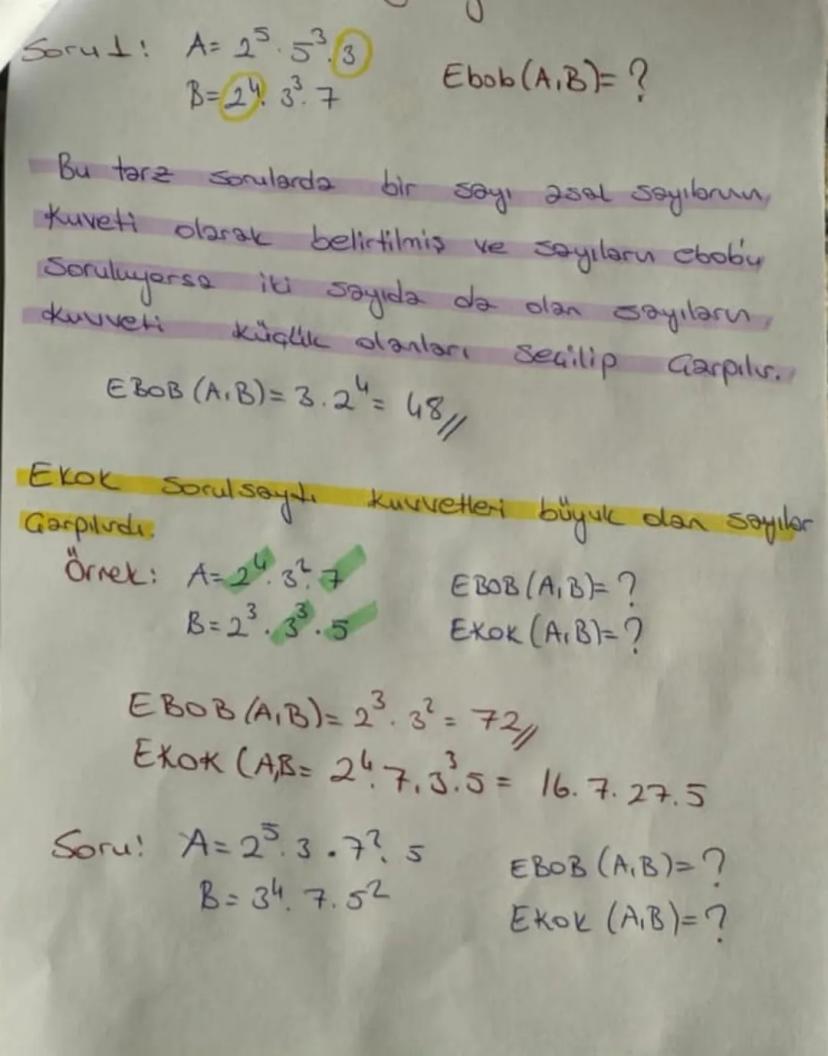 Soru 1: A= 2⁵. 5³. 3
Ebob(A,B)= ?
B= 2⁴. 3³. 7
Bu tarz sorularda bir sayı asal sayıların
kuveti olarak belirtilmiş ve sayıların ebob'u
soruluyorsa iki sayıda da olan sayıların
kuvveti küçük olanları seçilip çarpılır.
EBOB (A,B)= 3.2⁴= 48//
EKOK sorulsaydı kuvvetleri büyük olan sayılar
çarpılırdı.
Örnek: A= 2⁴. 3². 7 EBOB(A,B)= ?
B= 2³. 3³. 5 EKOK (A,B)= ?
EBOB (A,B)= 2³. 3² = 72//
EKOK (A,B= 2⁴.7.3³.5 = 16.7.27.5
Soru: A= 2⁵.3.7².5 EBOB (A,B)= ?
B= 3⁴.7.5² EKOK (A,B)= ?